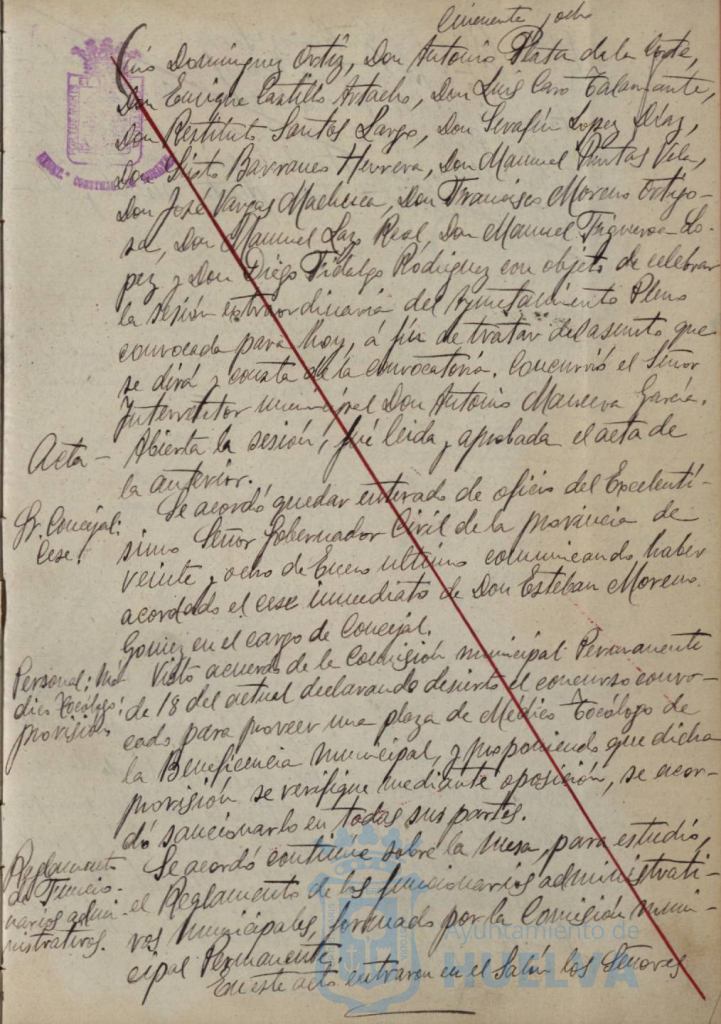 Cincuenta y ocho
Luis Dominguez Ortiz, Don Antonio Plata de la Corte,
Don Enrique Castillo Artacho, Don Luis Caro Talamante,
Don Restituto Santos Largo, Don Serafín Lopez Díaz,
Don Sixto Barranco Herrera, Don Manuel Puntas Vela,
Don José Vargas Machuca, Don Francisco Moreno Ortigo-
sa, Don Manuel Lazo Real, Don Manuel Figueroa Lo-
pez y Don Diego Fidalgo Rodriguez con objeto de celebrar
la sesión extraordinaria del Ayuntamiento Pleno
convocada para hoy, á fin de tratar del asunto que
se dirá y consta de la convocatoria. Concurrió el Señor
Interventor municipal Don Antonio García.
Acta - Abierta la sesión, fué leida y aprobada el acta de
la anterior.
Sr. Concejal: Cese.
Se acordó quedar enterado de oficio del Excelentí-
simo Señor Gobernador Civil de la provincia de
veinte y ocho de Enero último comunicando haber
acordado el cese inmediato de Don Esteban Moreno
Gomez en el cargo de Concejal.
Personal: Mé-
dico Tocólogo:
provisión
Visto acuerdo de la Comisión municipal Permanente
de 18 del actual declarando desierto el concurso convo-
cado para proveer una plaza de Médico Tocólogo de
la Beneficencia municipal, y proponiendo que dicha
provisión se verifique mediante oposición, se acor-
dó sancionarlo en todas sus partes.
Reglamento
de Funcio-
narios admi-
nistrativos.
Se acordó continúe sobre la mesa, para estudio,
el Reglamento de los funcionarios administrati-
vos municipales, formado por la Comisión muni-
cipal Permanente.
En este acto entraron en el Salón los Señores
Ayuntamiento de
HUELVA